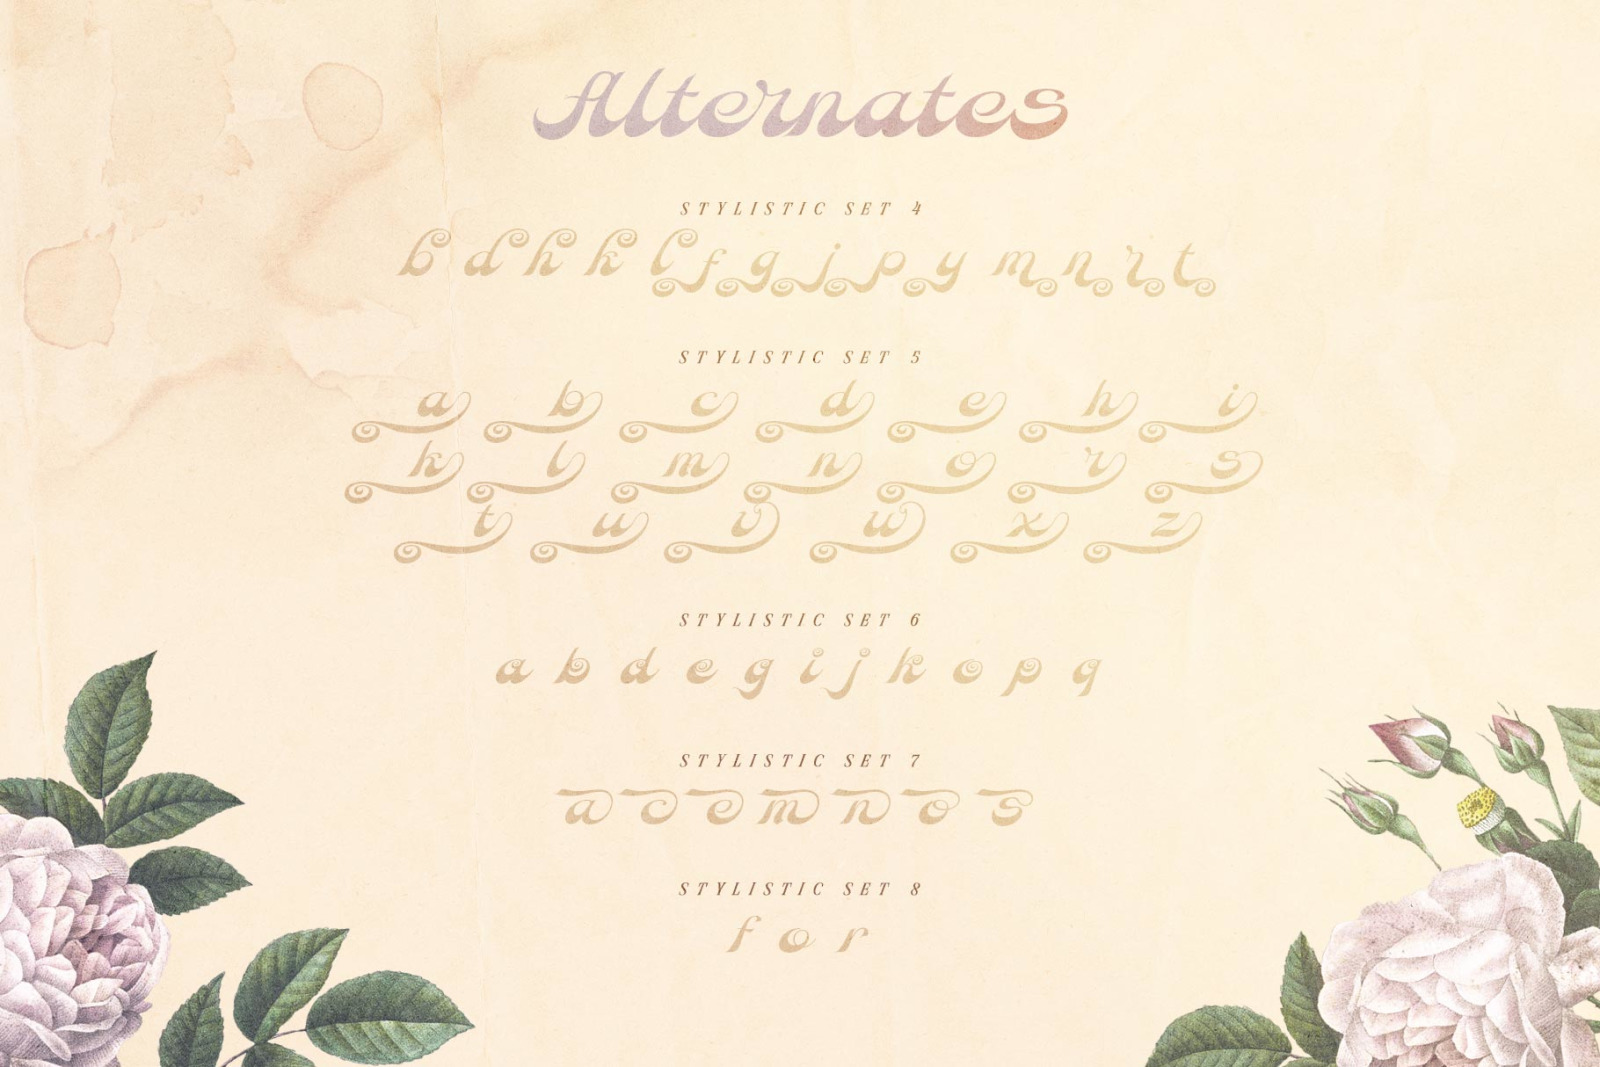 Alternates
STYLISTIC SET 4
b d h k l f g j p y m n r t
STYLISTIC SET 5
a b c d e h i
k l m n o r s
t u v w x z
STYLISTIC SET 6
a b d e g i j k o p q
STYLISTIC SET 7
a c e m n o s
STYLISTIC SET 8
f o r